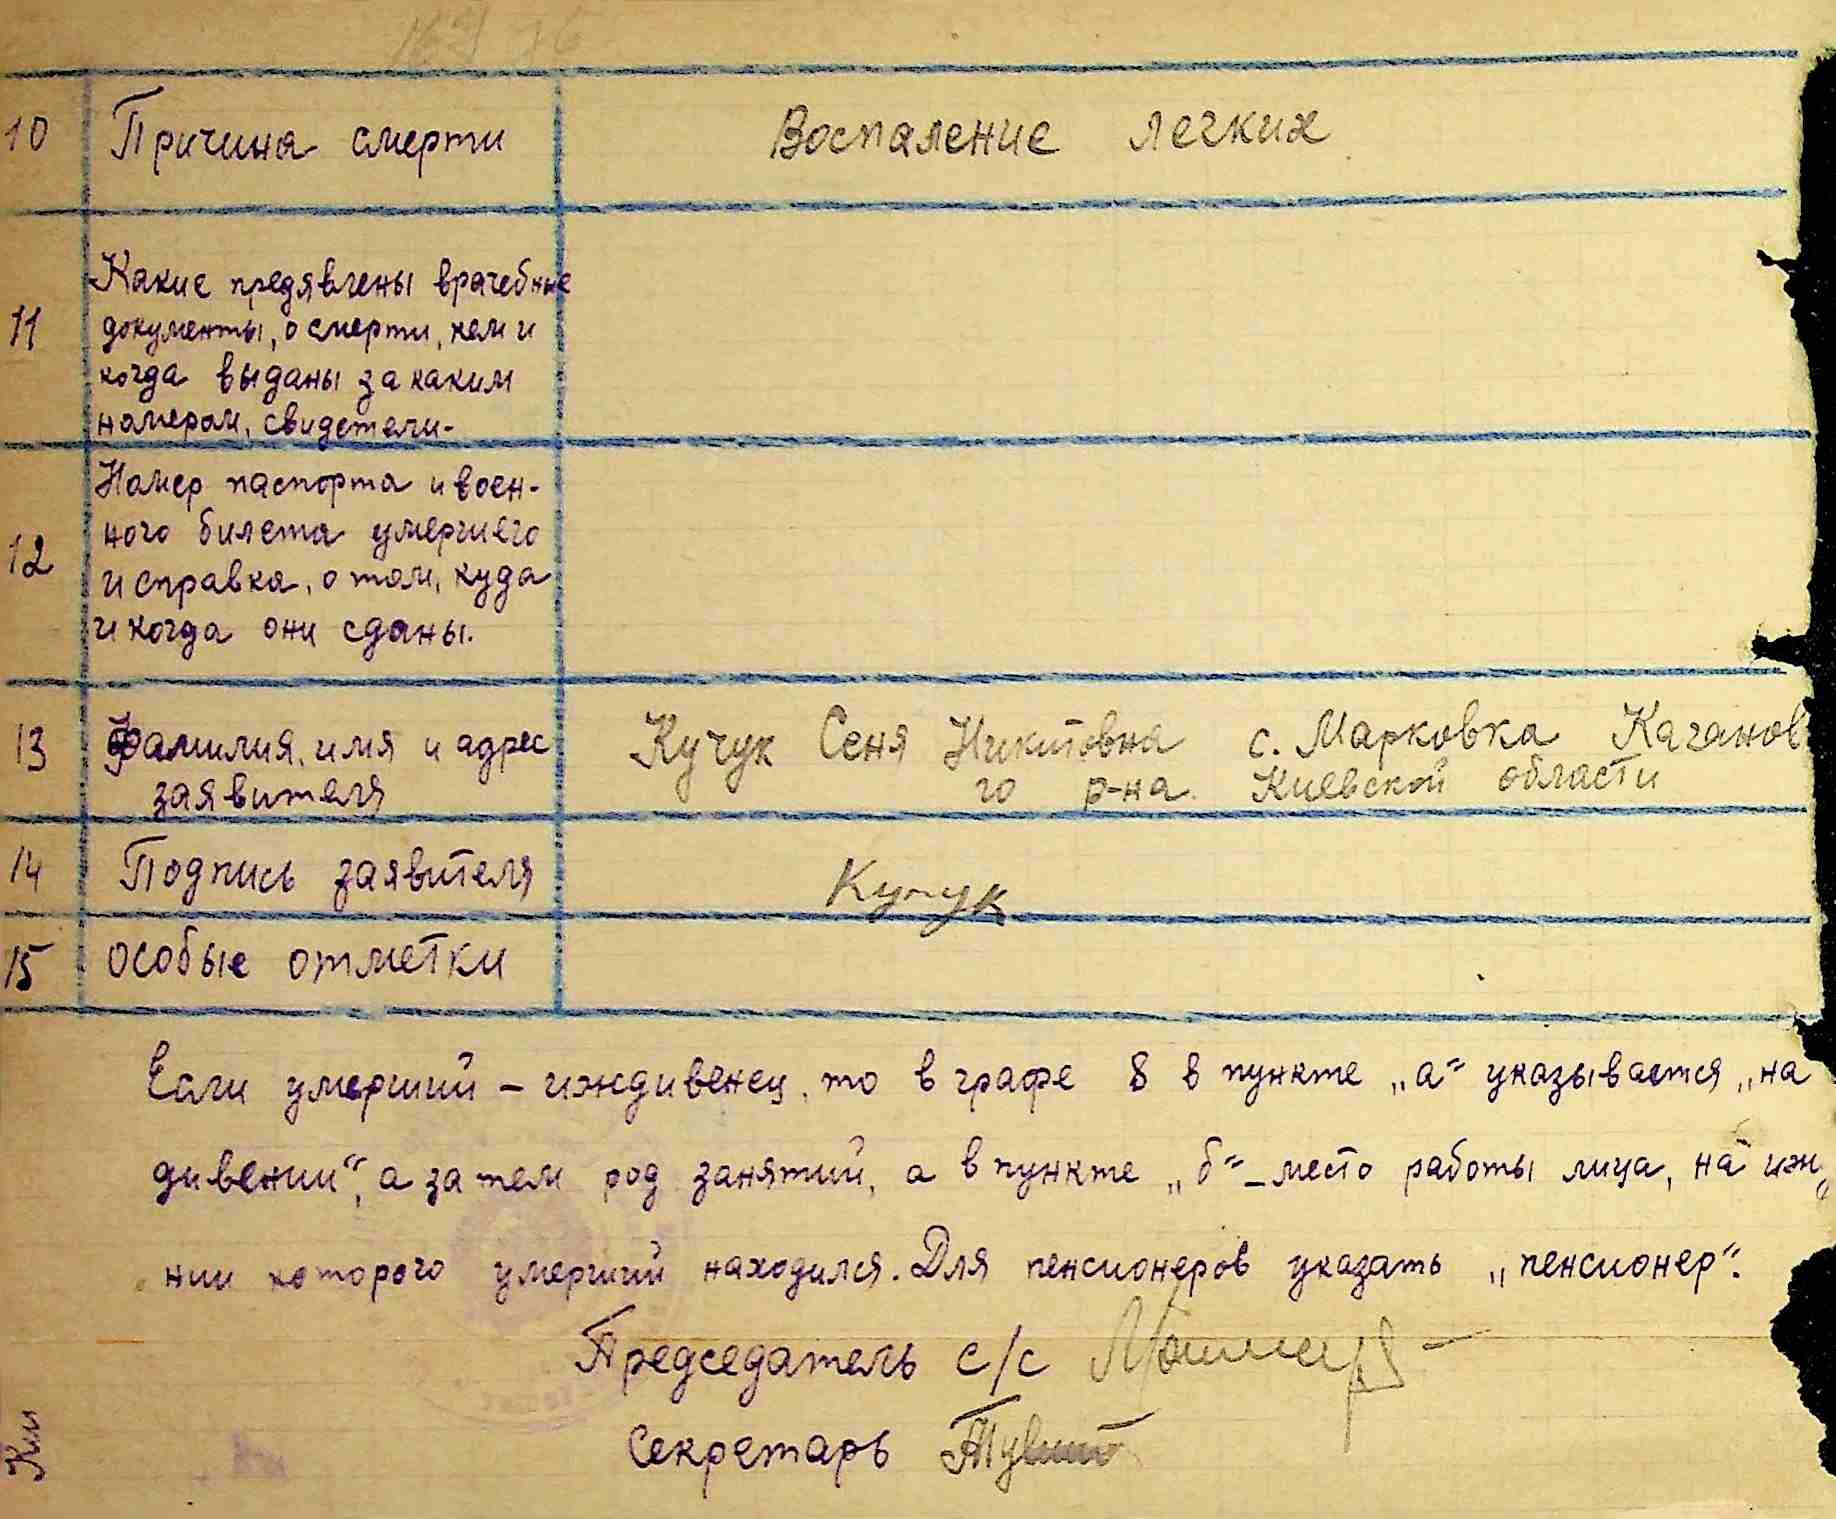 10 Причина смерти Воспаление легких
Какие предявлены врачебные
11 документы, о смерти, кем и
когда выданы за каким
номером, свидетели-
Номер паспорта и воен-
ного билета умершего
12 и справка, о том, куда
и когда они сданы.
13 Фамилия, имя и адрес Кучук Сеня Никитовна с. Марковка Каганов
заявителя го р-на. Киевской области
14 Подпись заявителя Кучук
15 особые отметки
Если умерший - иждивенец, то в графе 8 в пункте „а" указывается „на
дивении", а затем род занятий, а в пункте „б" - место работы лица, на иж
нии которого умерший находился. Для пенсионеров указать „пенсионер".
Председатель с/с
Секретарь